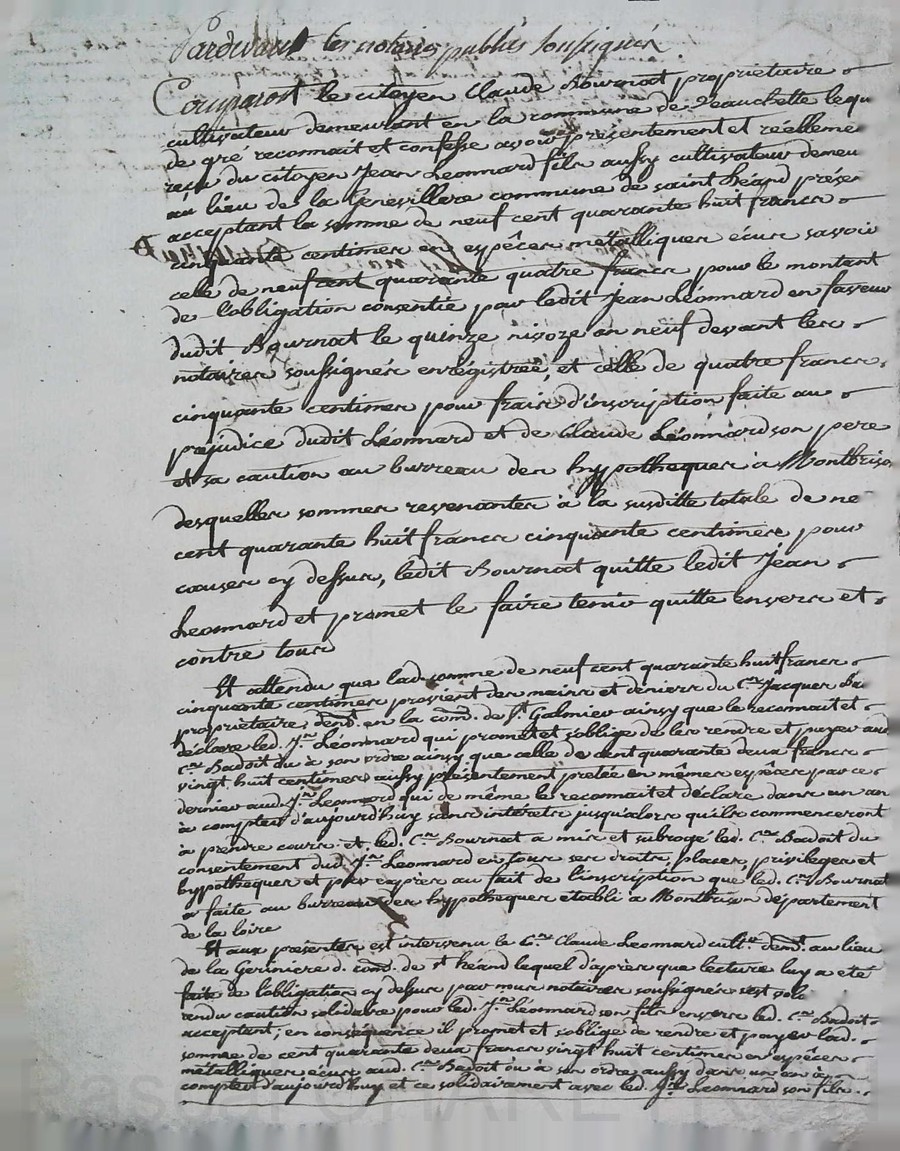 Pardevant les notaires publics soussignés
Comparoit le citoyen Claude Bournat propriétaire
cultivateur demeurant en la commune de Veauchette lequ
de gré reconnait et confesse avoir présentement et réelleme
reçu du citoyen Jean Leonnard fils aussy cultivateur demeu
au lieu de la commune de saint héand présen
acceptant la somme de neuf cent quarante huit francs
cinquante centimes en espêces métalliques écus savoir
celle de neuf cent quarante quatre francs pour le montant
de l'obligation consentie par ledit Jean Léonnard en faveur
dudit Bournat le quinze nivoze an neuf devant les
notaires soussignés enrégistrée, et celle de quatre francs
cinquante centimes pour frais d'inscription faite au
préjudice dudit Léonnard et de Claude Léonnard son pere
et sa caution au burreau des hypotheques à Montbrison
desquelles sommes revenantes à la susditte totale de ne
cent quarante huit francs cinquante centimes pour
causes cy dessus, ledit Bournat quitte ledit Jean
Leonnard et promet le faire tenir quitte envers et
contre tous
Et attendu que lad. somme de neuf cent quarante huit francs
cinquante centimes provient des mains et deniers du C.en Jacques Ba
propriétaire demt. en la com. de St Galmier ainsy que le reconnait et
déclare led. Jn. Léonnard qui promet et s'oblige de les rendre et payer aud
C.en Badoit ou à son ordre ainsy que celle de cent quarante deux francs
vingt huit centimes aussy présentement pretée en mêmes espêces par ce
dernier aud. Jn. Leonnard qui de même le reconnait et déclare dans un an
à compter d'aujourd'huy sans intérêts jusqu'alors qu'ils commenceront
à prendre cours. et led. C.en Bournat a mis et subrogé led. C.en Badoit du
consentement dud. Jn. Leonnard en tous ses droits, places, privileges et
hypotheques et par exprès au fait de l'inscription que led. C.en Bournat
a faite au burreau des hypotheques établi à Montbrison département
de la loire
Et aux présentes est intervenu le C.en Claude Leonnard cult.r demt. au lieu
de la d. com. de st héand lequel d'après que lecture luy a eté
faite de l'obligation cy dessus par nous notaires soussignés s'est volo
rendu caution solidaire pour led. Jn. Léonnard son fils envers led. C.en Badoit
acceptant, en conséquence il promet et s'oblige de rendre et payer lad.
somme de cent quarante deux francs vingt huit centimes en espêces
métalliques écus aud. C.en Badoit ou à son ordre aussy dans un an à
compter d'aujourd'huy et ce solidairement avec led. Jn. Leonnard son fils.